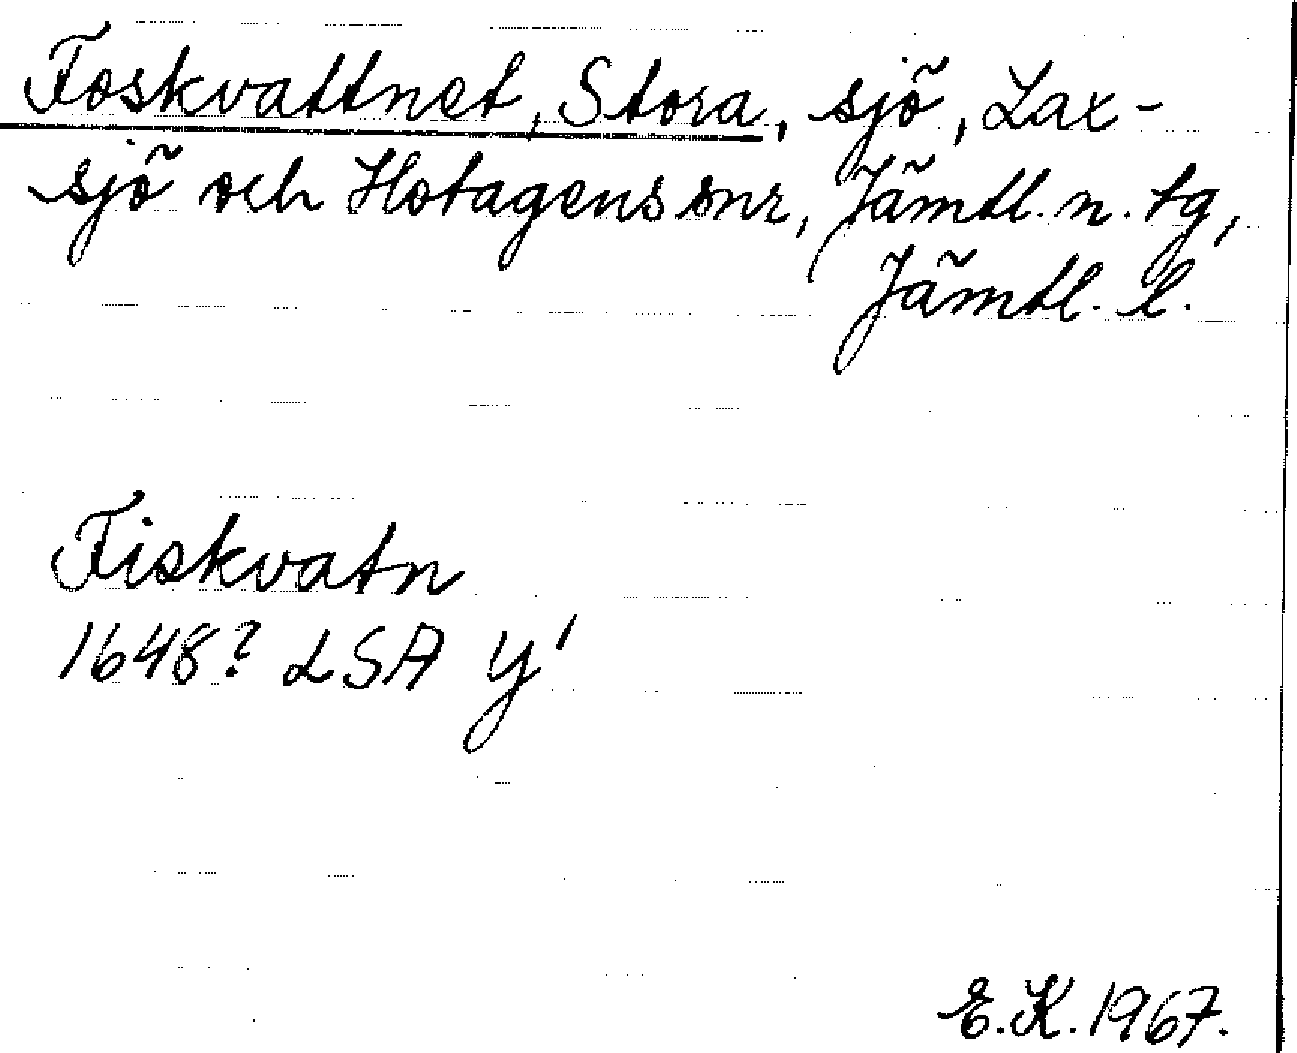 Foskvattnet, Stora, sjö, Lax-
sjö och Hotagens snr, Jämtl. n. tg,
Jämtl. l.
Fiskvatn
1648? LSA y'
E.K. 1967.